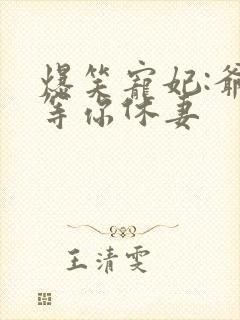 爆笑宠妃:爷
等你休妻
王清雯